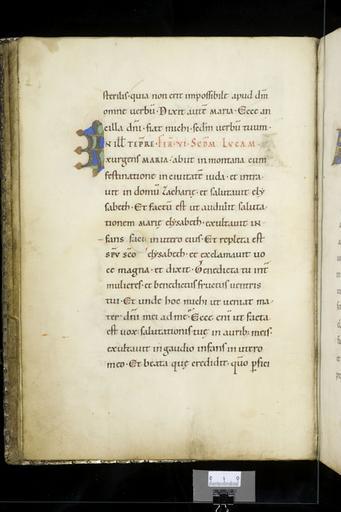 sterilis· quia non erit impossibile apud dm̄
omne verbū· Dixit autē maria· Ecce an
cilla dn̄i· fiat michi scd̄m verbū tuum·
IN ILL̄ TEPRE· FER· VI· SCDM LVCAM·
Exurgens MARIA· abiit in montana cum
festinatione in civitatē iuda· et intra
vit in domū Zacharię· et salutavit ely
sabeth· Et factū est ut audivit saluta
tionem marię elysabeth· exultavit in
fans in utero eius· Et repleta est
sp̄u sc̄o elysabeth· et exclamavit vo
ce magna· et dixit· Benedicta tu int̄
mulieres· et benedictus fructus ventris
tui· Et unde hoc michi ut veniat ma
ter dn̄i mei ad me· Ecce enī ut facta
est vox salutationis tuę in aurib; meis·
exultavit in gaudio infans in utero
meo· Et beata quę credidit· qn̄o ꝑfici